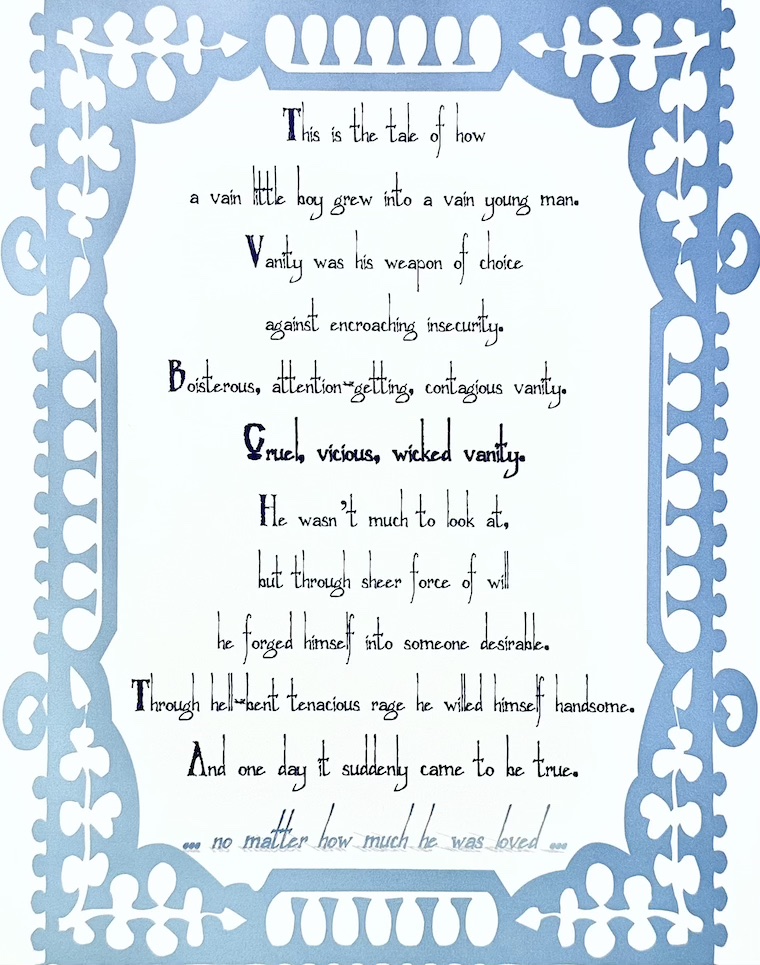 This is the tale of how
a vain little boy grew into a vain young man.
Vanity was his weapon of choice
against encroaching insecurity.
Boisterous, attention-getting, contagious vanity.
Cruel, vicious, wicked vanity.
He wasn't much to look at,
but through sheer force of will
he forged himself into someone desirable.
Through hell-bent tenacious rage he willed himself handsome.
And one day it suddenly came to be true.
... no matter how much he was loved ...